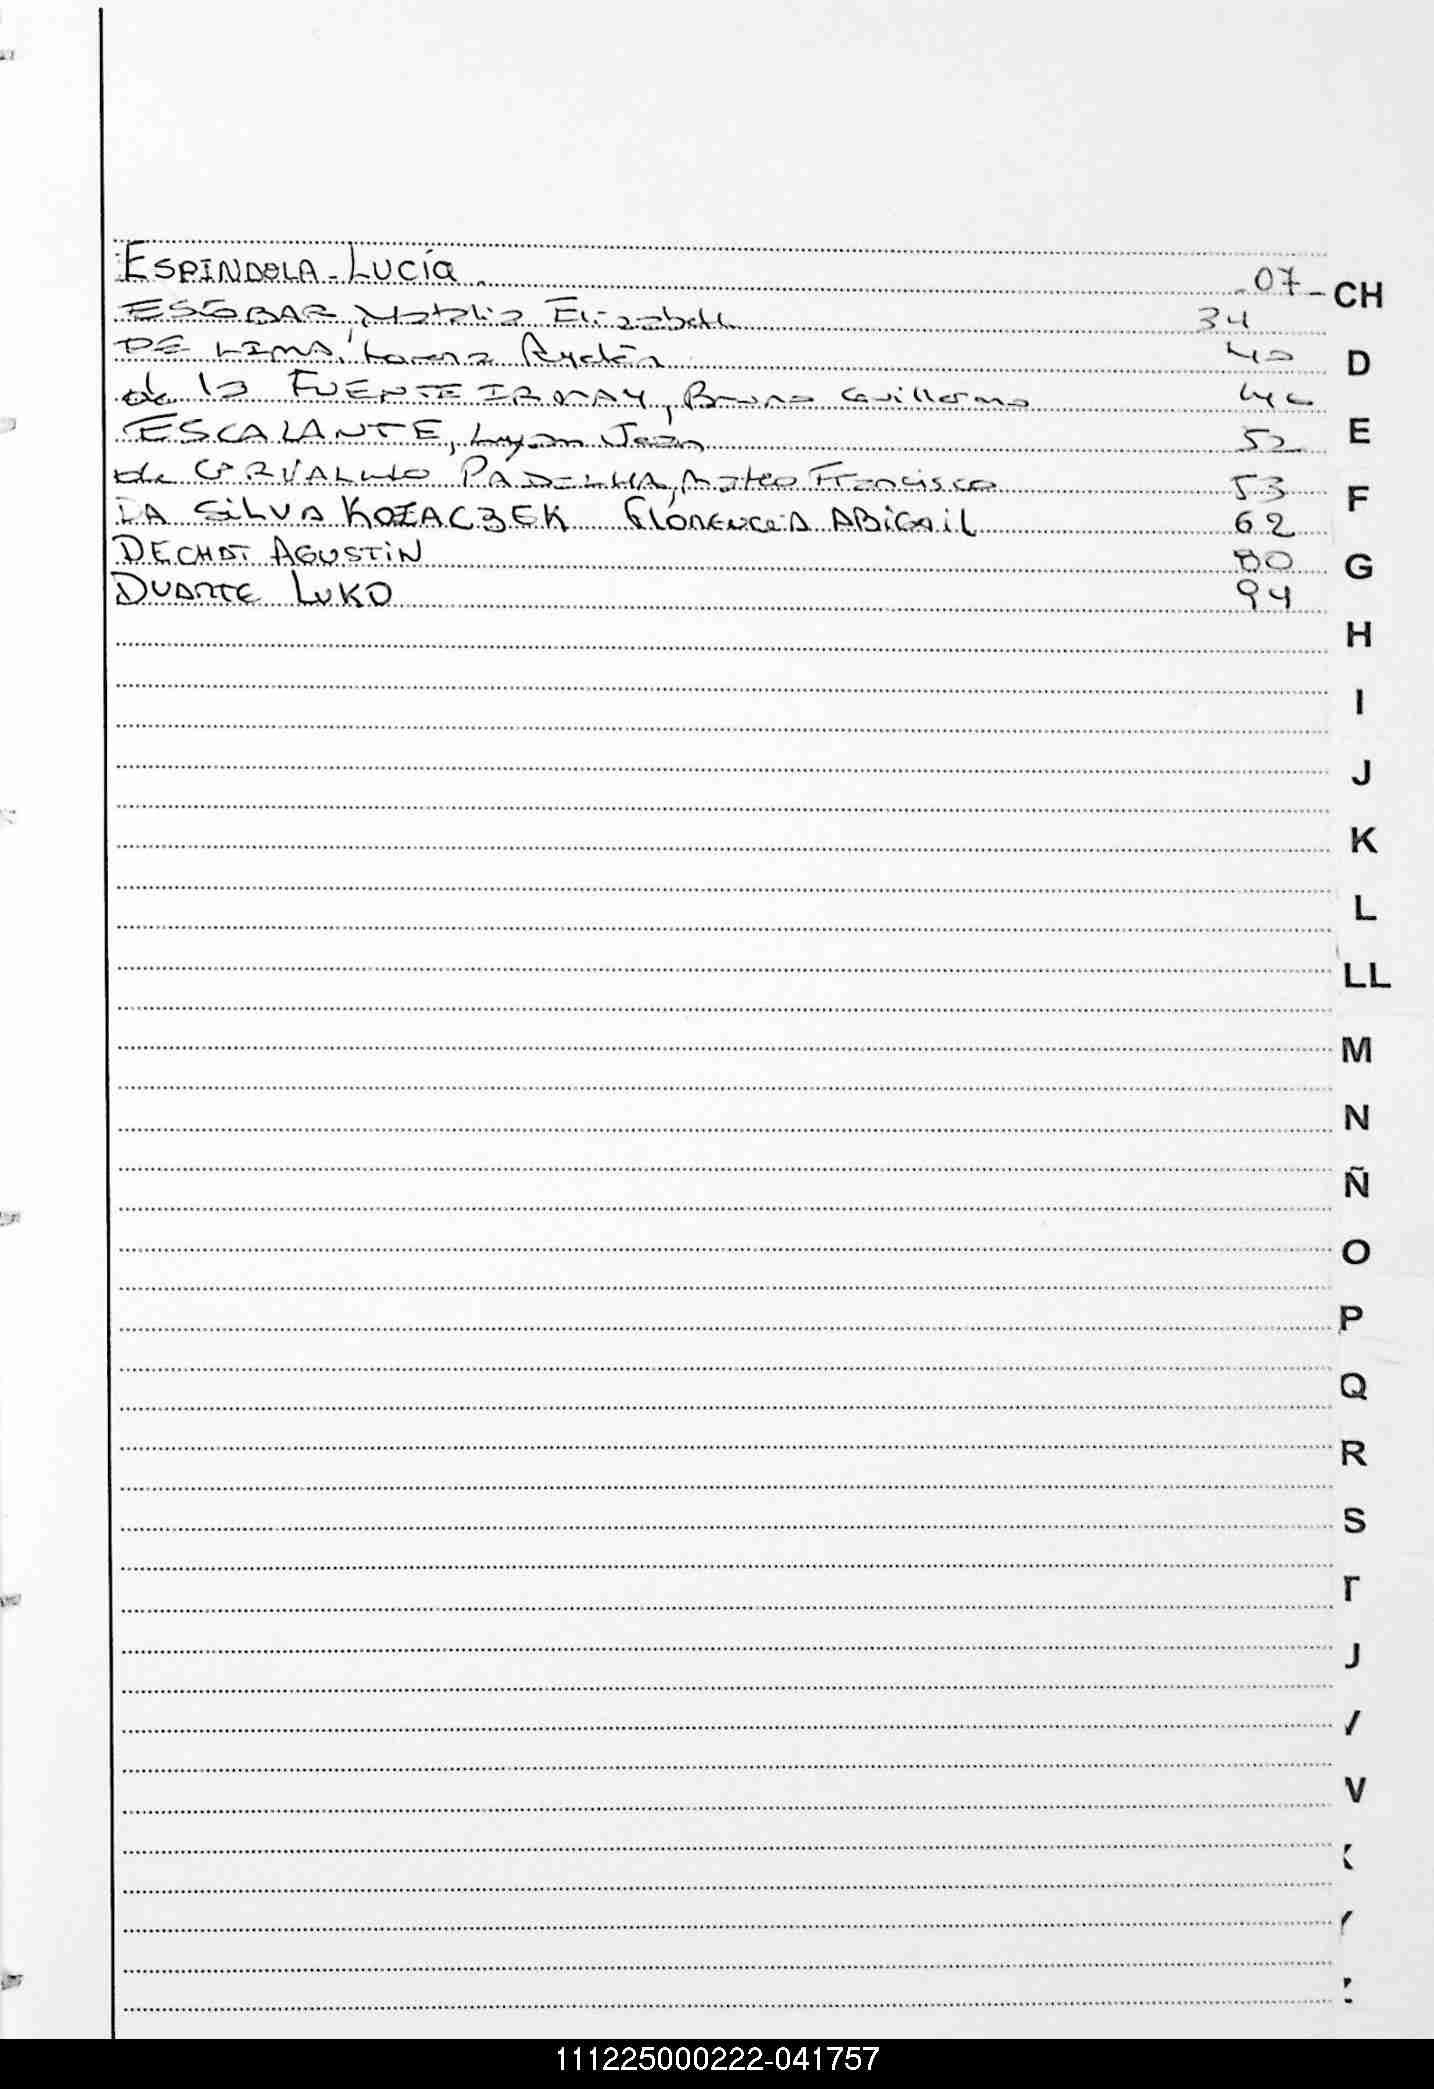 ESPINDOLA - Lucía - 07 - CH
ESCOBAR, Natalia Elizabeth 34
DE LIMA, Lorenz Ayelén 40 D
de la FUENTE IRMAY, Bruno Guillermo 46
ESCALANTE, Juan 52 E
de CARVALHO PADILHA, Mateo Francisco 53 F
DA SILVA KOZACZEK FLORENCIA ABIGAIL 62
DECHAT AGUSTIN 80 G
DUARTE LUKO 94
H
I
J
K
L
LL
M
N
Ñ
O
P
Q
R
S
T
V
111225000222-041757